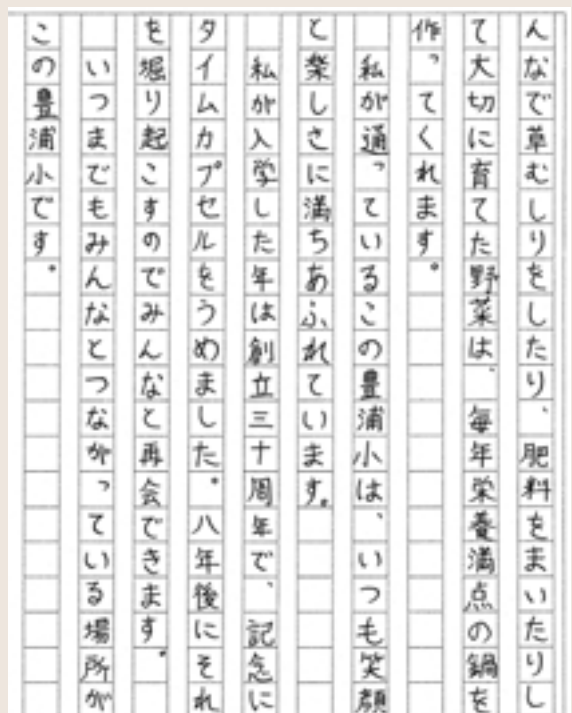 んなで草むしりをしたり、肥料をまいたりし
て大切に育てた野菜は、毎年栄養満点の鍋を
作ってくれます。
私が通っているこの豊浦小は、いつも笑顔
と楽しさに満ちあふれています。
私が入学した年は創立三十周年で、記念に
タイムカプセルをうめました。八年後にそれ
を堀り起こすのでみんなと再会できます。
いつまでもみんなとつながっている場所が
この豊浦小です。